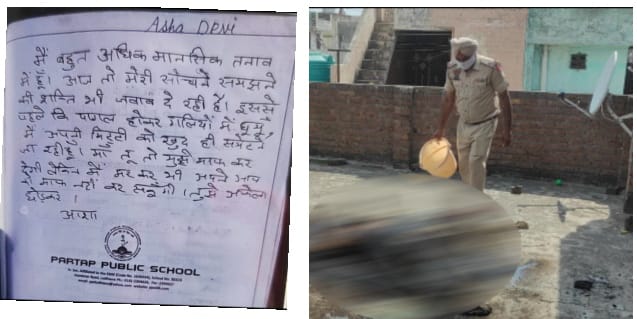 Asha DEVI
मैं बहुत अधिक मानसिक तनाव
में हूं। आज तो मेरी सोचने समझने
की शक्ति भी जवाब दे रही है। इससे
पहले कि पागल होकर गलियों में घुमूं
मैं अपनी मिट्टी को खुद ही समेटने
जा रही हूं। मां, तू तो मुझे माफ कर
देगी लेकिन मैं मर कर भी अपने आप
को माफ नहीं कर सकूंगी। तुझे अकेला
छोड़कर।
आशा
PARTAP PUBLIC SCHOOL